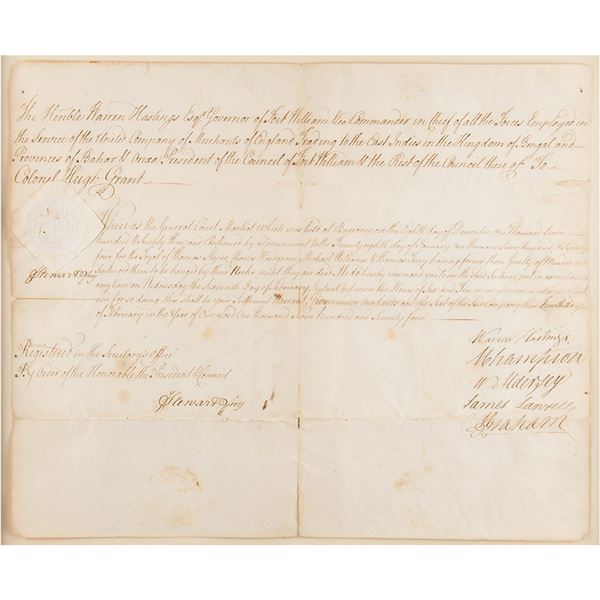 The Honble Warren Hastings Esqr. Governor of Fort William &c Commander in Chief of all the Forces Employed in
the Service of the United Company of Merchants of England Trading to the East Indies in the Kingdom of Bengal and
Provinces of Bahar & Orixa President of the Council of Fort William & the Rest of the Council there of To
Colonel Hugh Grant
Whereas the General Court Martial which was held at Burrampore the Eighth Day of December one Thousand Seven
Hundred & Seventy three and Continued by adjournment to the Twenty eighth day of January one thousand seven hundred & Seventy
four for the Tryal of Thomas Charles Michael Williams & Thomas having found them Guilty of
sentenced them to be hanged by their Necks untill they are dead We do hereby command you to
any time on Wednesday the Sixteenth Day of February Instant between the Hours of Six and
and for so doing this shall be your Sufficient Warrant Given under Our hands and the Seal of the said company this day
of February in the Year of Our Lord One Thousand Seven hundred and Seventy four
JStewart Secy
Registered in the Secretary's Office
By Order of the Honorable the President & Council
JStewart Secy
Warren Hastings
W Aldersey
James Lawrell
J Graham